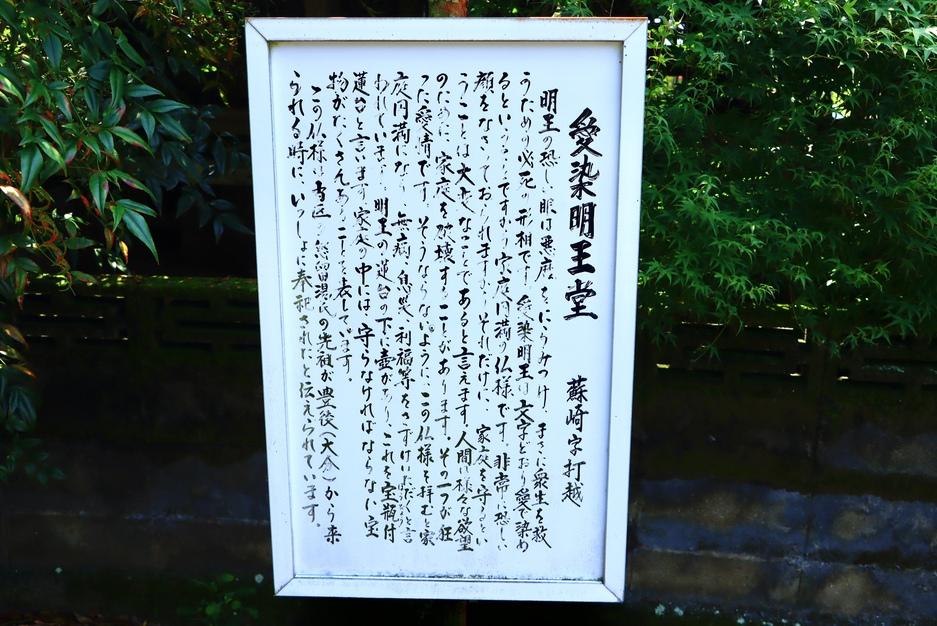 愛染明王堂　蘇崎字打越
明王の恐しい眼は悪魔をにらみつけ、まさに衆生を救
うための必死の形相です。愛染明王は文字どおり愛を染め
るということですから家庭円満の仏様です。非常に恐しい
顔をなさっておられますが、それだけに、家庭を守るとい
うことは大変なことであると言えます。人間は様々な欲望
のために、家庭を破壊することがあります。その一つが狂
った愛情です。そうならないように、この仏様を拝むと家
庭円満になり、無病、息災、利福等をさずけいただくと言
われています。明王の蓮台の下に壷があり、これを宝瓶付
蓮台と言います。家庭の中には、守らなければならない宝
物がたくさんあることを表しています。
この仏様は当区の 湯氏の先祖が豊後（大分）から来
られる時に、いっしょに奉祀されたと伝えられています。